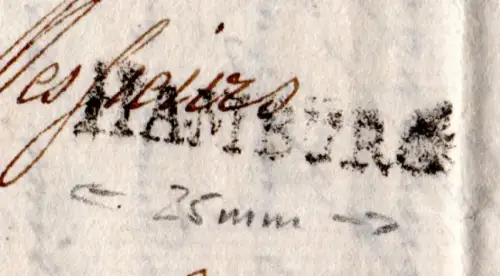 Messieurs
HAMBURG
← 25mm →